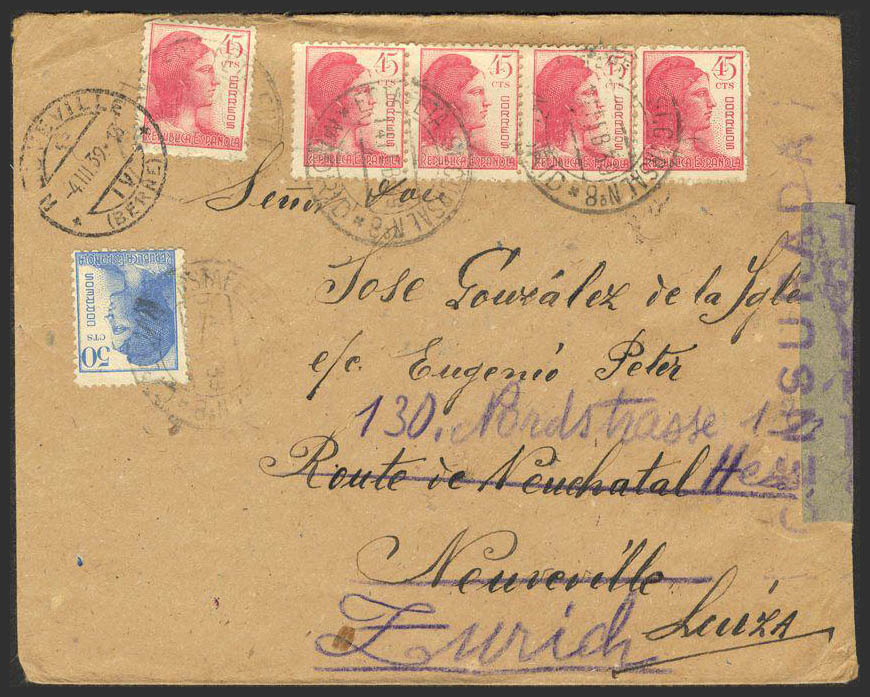 45
CTS
CORREOS
REPUBLICA ESPAÑOLA
45
CTS
CORREOS
REPUBLICA ESPAÑOLA
45
CTS
CORREOS
REPUBLICA ESPAÑOLA
45
CTS
CORREOS
REPUBLICA ESPAÑOLA
45
CTS
CORREOS
REPUBLICA ESPAÑOLA
-4.III.39
IV
(BERNE)
SUCURSAL Nº 8
SUCURSAL Nº 8
50
CTS
CORREOS
REPUBLICA ESPAÑOLA
Señor Don
Jose González de la Igle
c/c Eugenio Peter
130. Nordstrasse 130
Route de Neuchatal
Neuveville
Zurich Suiza
CENSURADA